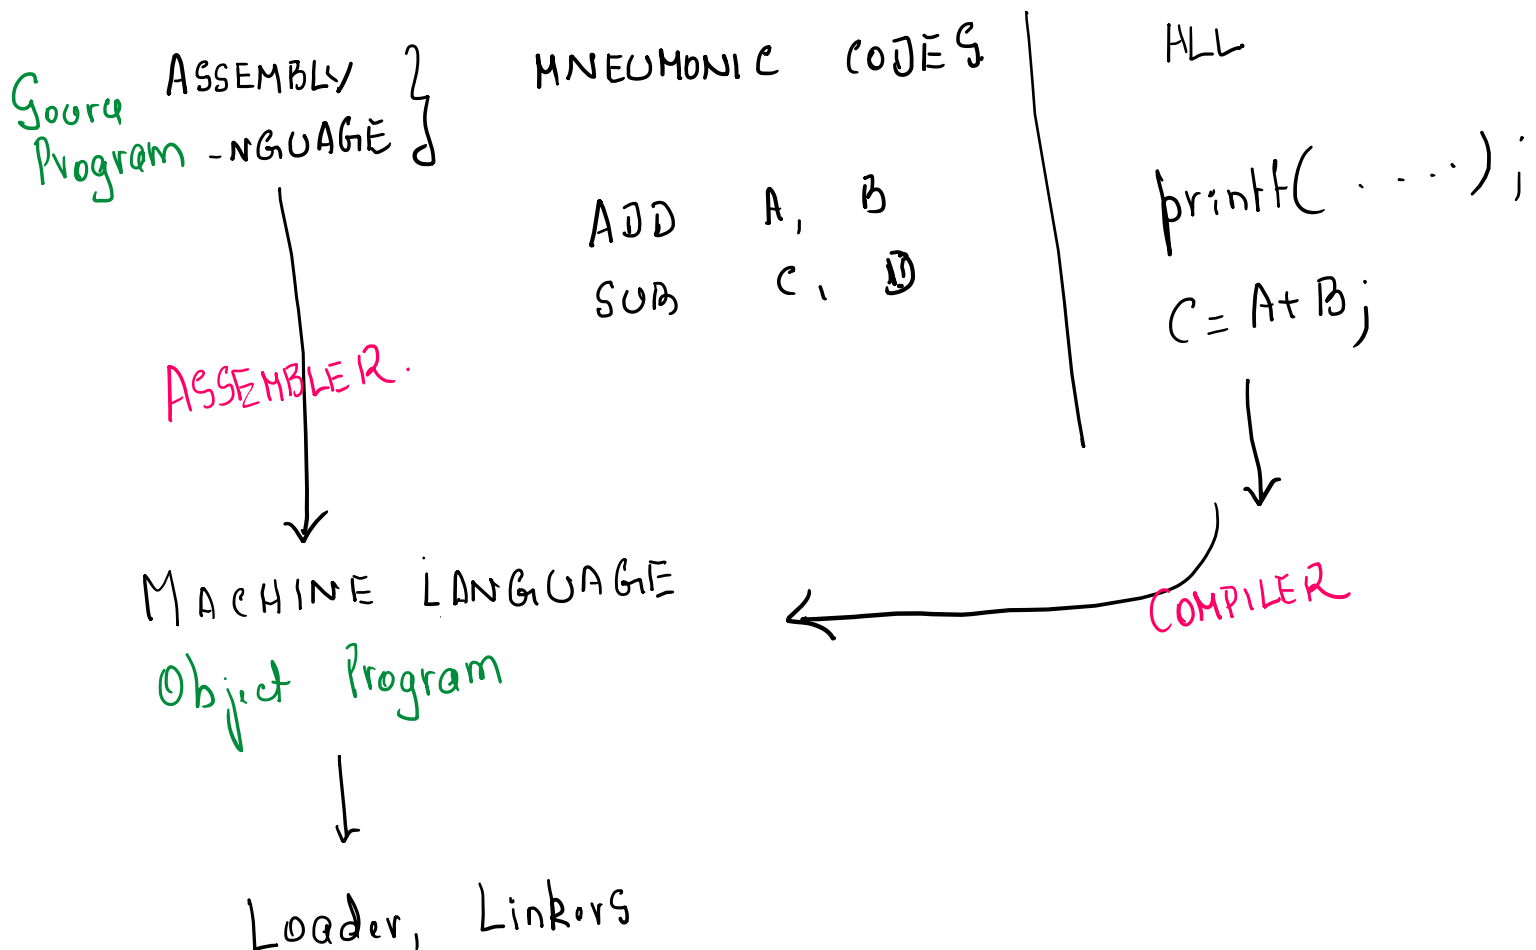 Source
Program
ASSEMBLY
-NGUAGE
MNEUMONIC CODES
ADD A, B
SUB C, D
HLL
printf( ....);
C = A + B;
ASSEMBLER.
COMPILER
MACHINE LANGUAGE
Object Program
Loader, Linkers